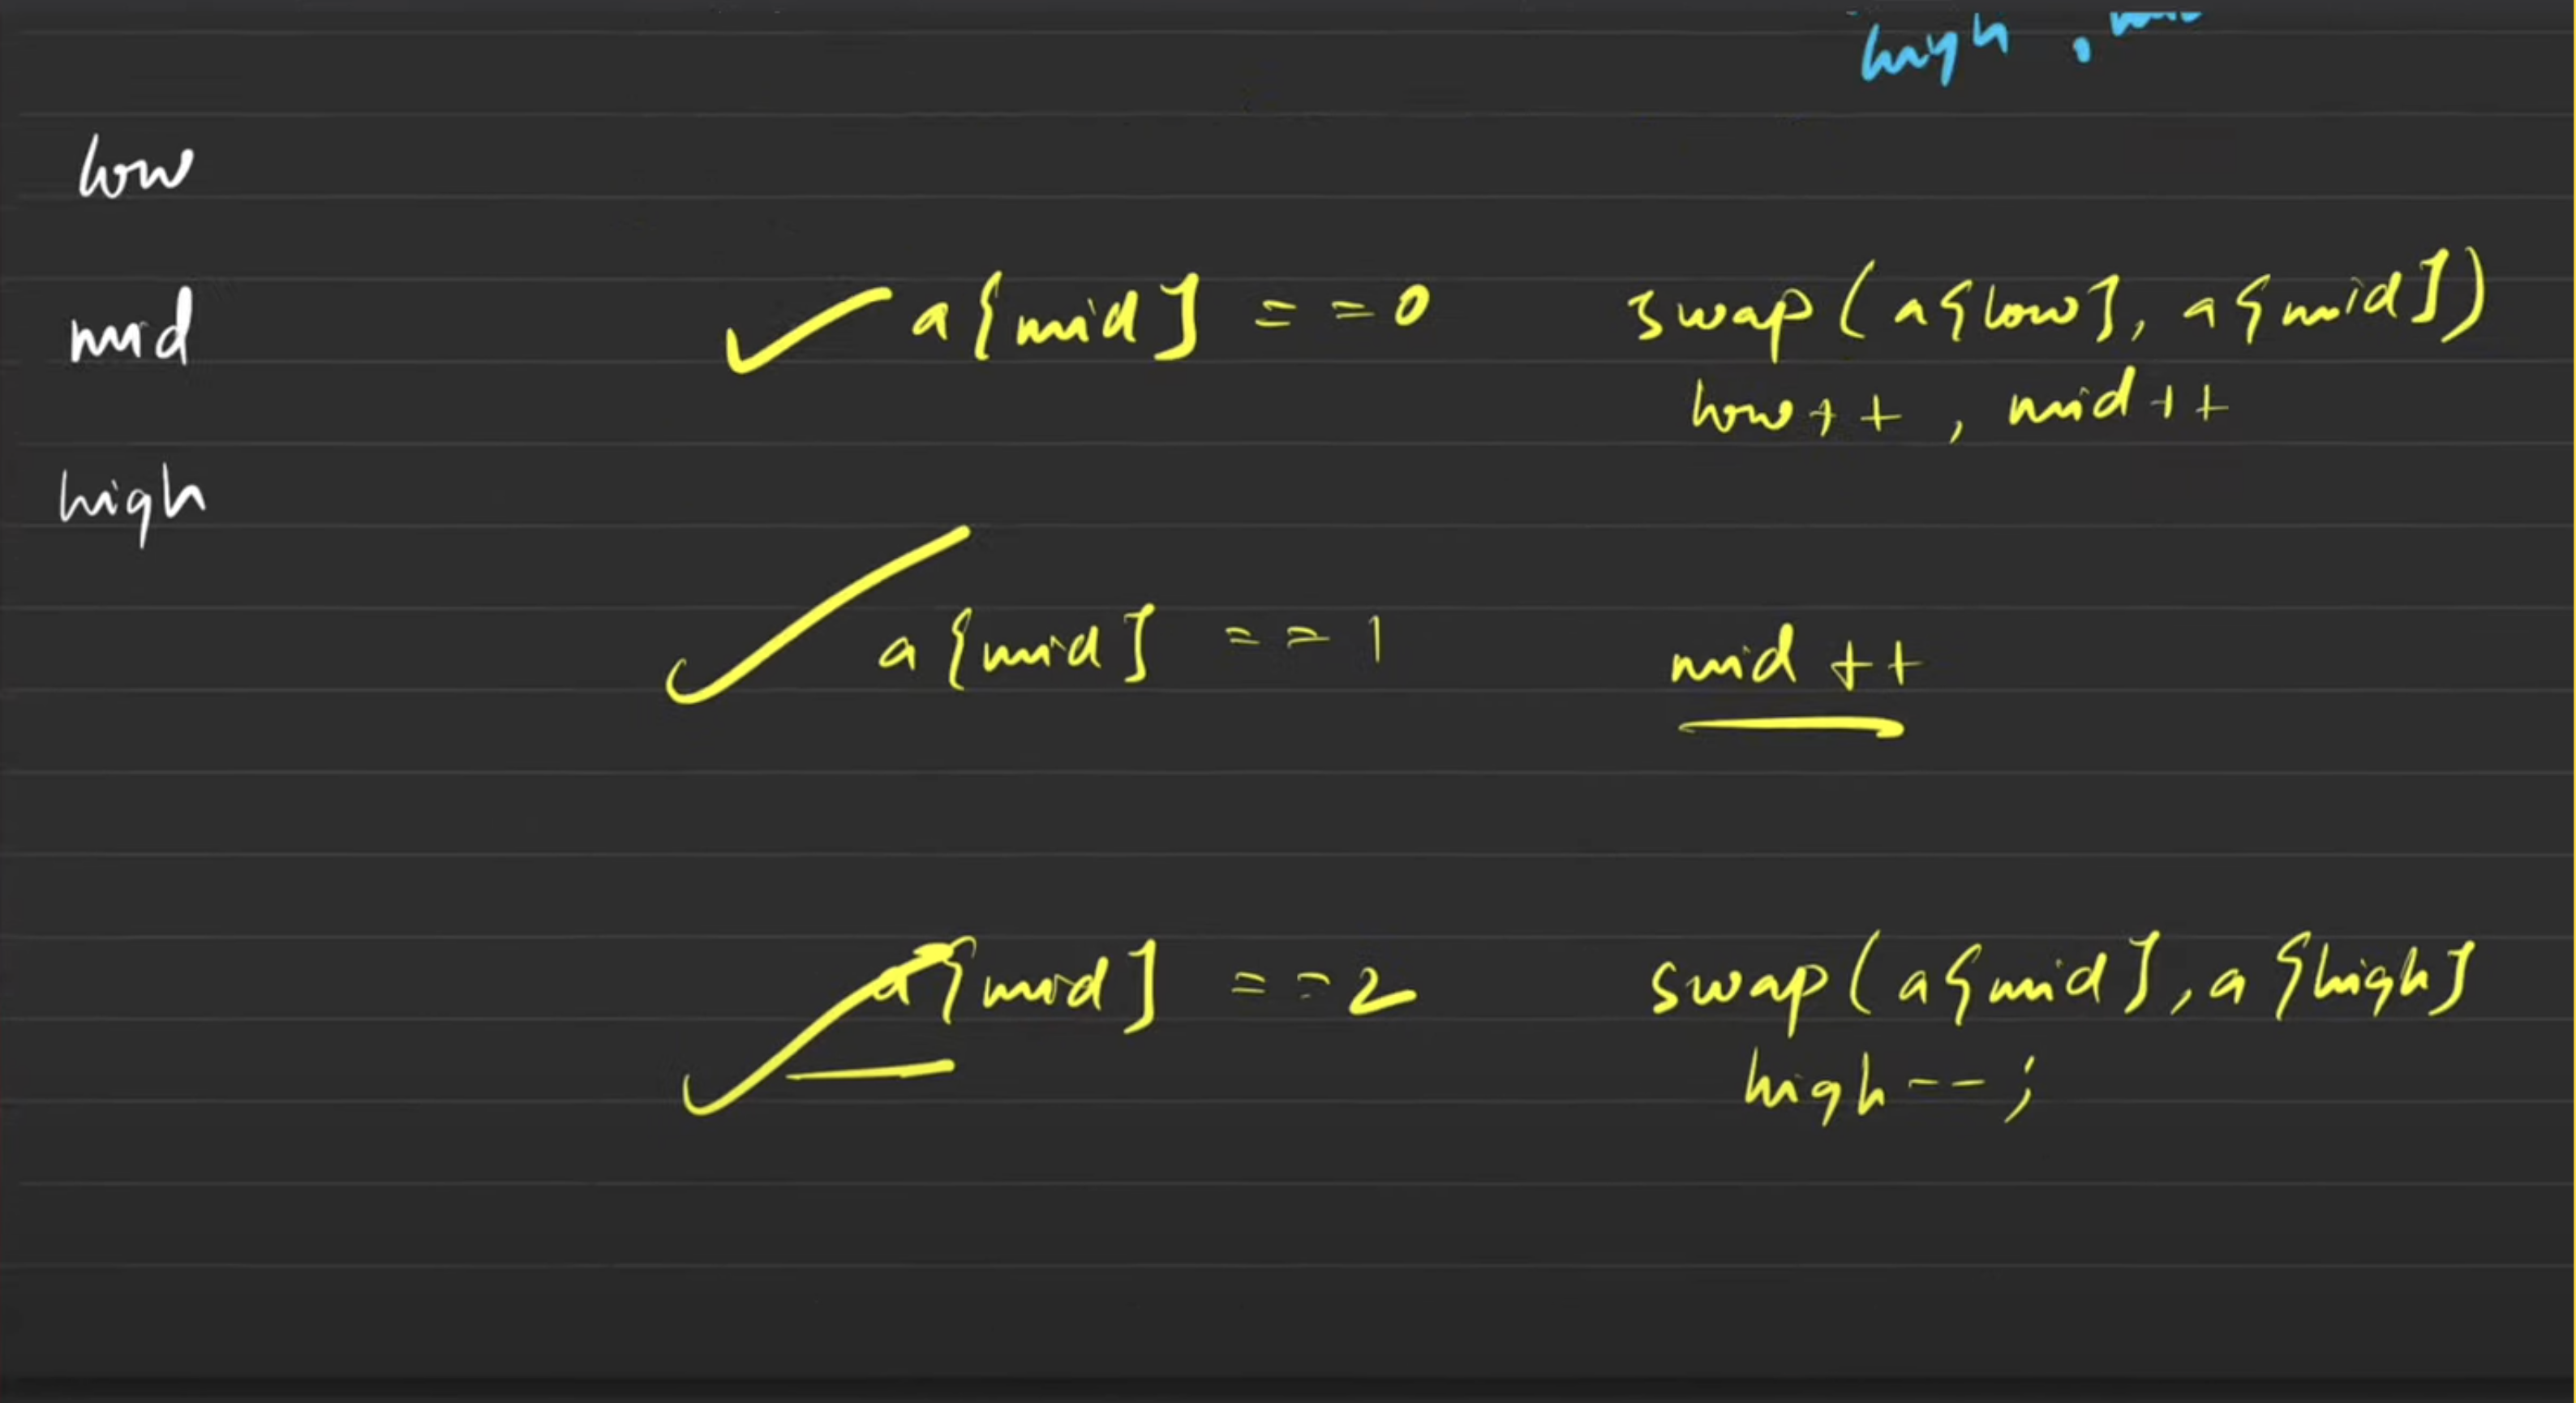 high,
low
mid
a[mid] == 0 swap(a[low], a[mid])
low++, mid++
high
a[mid] == 1 mid++
a[mid] == 2 swap(a[mid], a[high]
high--;